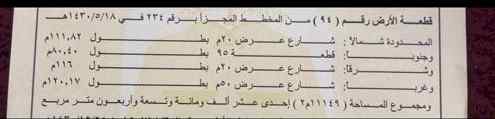 قطعة الأرض رقم ( ٩٤ ) من المخطط المجزأ برقم ٢٣٤ في ١٤٣٠/٥/١٨هـ
المحدودة شمالاً : شارع عرض ٢٠م بطول ١١١,٨٢م
وجنوباً : قطعة ٩٥ بطول ٨٠,٤٠م
وشرقاً : شارع عرض ٢٠م بطول ١١٦م
وغرباً : شارع عرض ٥٠م بطول ١٢٠,١٧م
ومجموع المساحة ( ١١١٤٩م٢ ) إحدى عشر ألف ومائة وتسعة وأربعون متر مربع